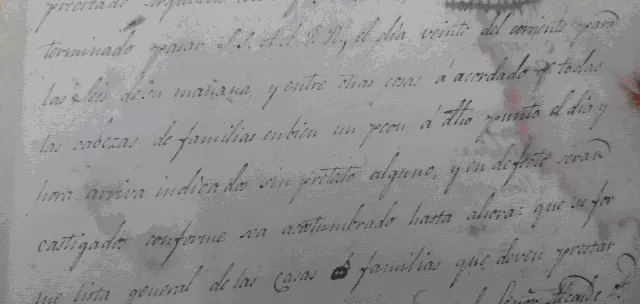 terminado pasar S.S.A.A.R.R, el dia veinte del corriente para
las seis de su mañana, y entre otras cosas á acordado q.e todas
las cabezas de familias enbien un peon á dho punto el dia y
hora arriva indicados sin preteto alguno, y en defecto seran
castigados conforme sea acostumbrado hasta ahora: que se for
me lista general de las casas de familias que deven prestar